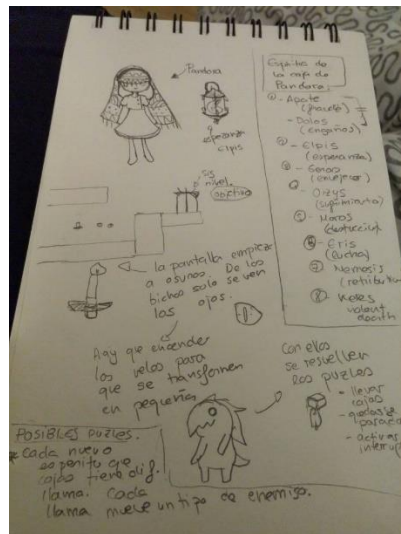 Pandora
esperanza
Elpis
Espíritus de
la caja de
Pandora:
- Apate
(fraude)
- Dolos
(engaños)
- Elpis
(esperanza)
(envejecer)
- Oizys
(sufrimiento)
- Moros
(destrucción)
- Eris
(lucha)
- Nemesis
- Keres
violent
death
sig
nivel.
objetivo
la pantalla empieza
a oscuras. De los
bichos solo se ven
los ojos.
Hay que encender
las velas para
que se transformen
en pequeños
Con ellos
se resuelven
los puzles
- llevar
cajas
- quedarse
parado
- activar
POSIBLES PUZLES.
* Cada nuevo
espíritu que
cojas tiene dif.
llama. Cada
llama mueve un tipo de enemigo.